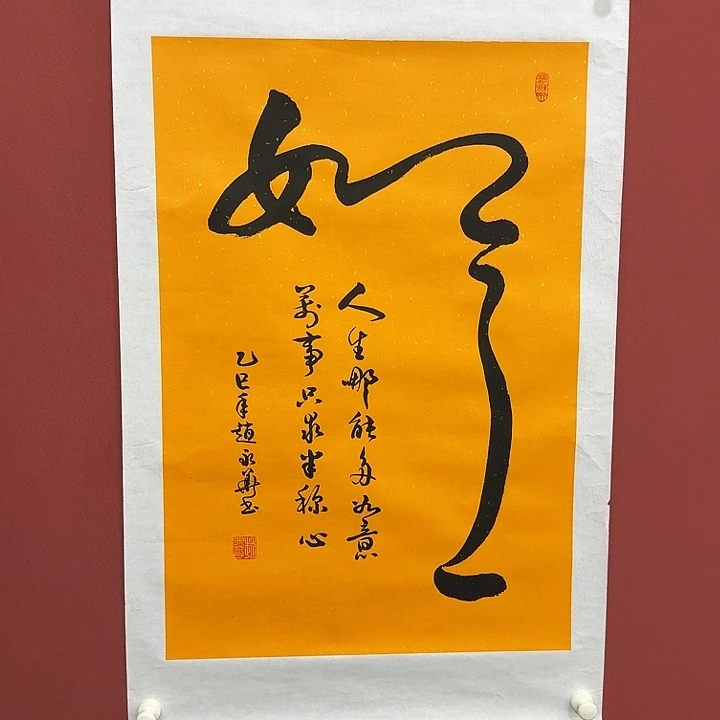 如
人生哪能多如意
萬事只求半称心
乙巳年趙永華书